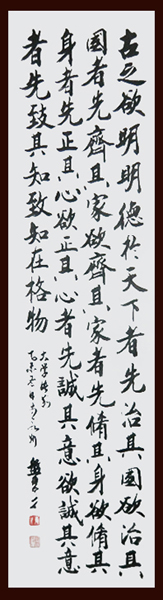 古之欲明明德於天下者先治其國欲治其
國者先齊其家欲齊其家者先脩其身欲脩其
身者先正其心欲正其心者先誠其意欲誠其意
者先致其知致知在格物